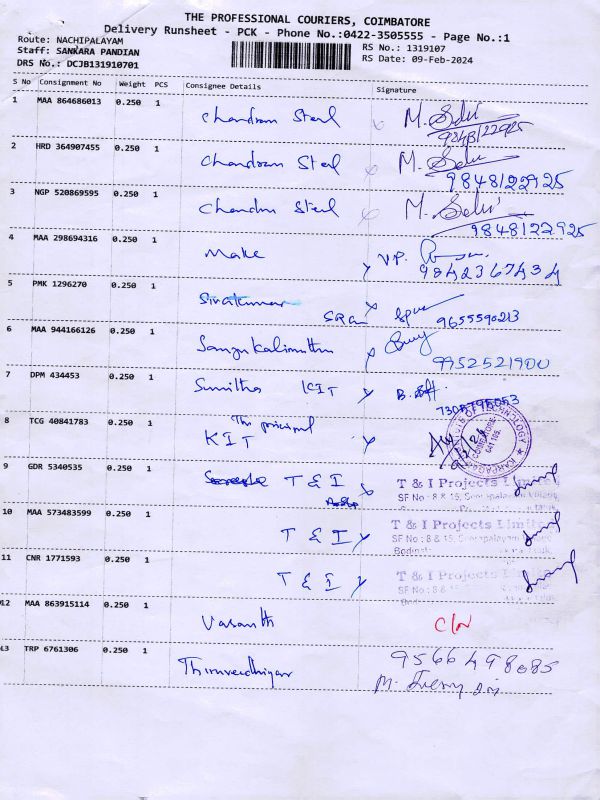 THE PROFESSIONAL COURIERS, COIMBATORE
Delivery Runsheet - PCK - Phone No.:0422-3505555 - Page No.:1
Route: NACHIPALAYAM
Staff: SANKARA PANDIAN
DRS No.: DCJB131910701
RS No.: 1319107
RS Date: 09-Feb-2024
S No Consignment No Weight PCS Consignee Details Signature
1 MAA 864686013 0.250 1 Chandran Steel M. Selvi
9848122925
2 HRD 364907455 0.250 1 Chandran Steel M. Selvi
9848122925
3 NGP 520869595 0.250 1 Chandran Steel M. Selvi
9848122925
4 MAA 298694316 0.250 1 Make V.P.
9842367434
5 PMK 1296270 0.250 1 Sivakumar
9655590213
6 MAA 944166126 0.250 1
9952521900
7 DPM 434453 0.250 1 Sumitha KIT
8 TCG 40841783 0.250 1 The principal
KIT
COIMBATORE
641 105.
9 GDR 5340535 0.250 1 T & I T & I Projects Limited
SF No : 8 & 15,
10 MAA 573483599 0.250 1 T & I T & I Projects Limited
SF No : 8 & 15,
11 CNR 1771593 0.250 1 T & I T & I Projects
SF No : 8 &
12 MAA 863915114 0.250 1 Vasanth C/N
13 TRP 6761306 0.250 1 9566498685